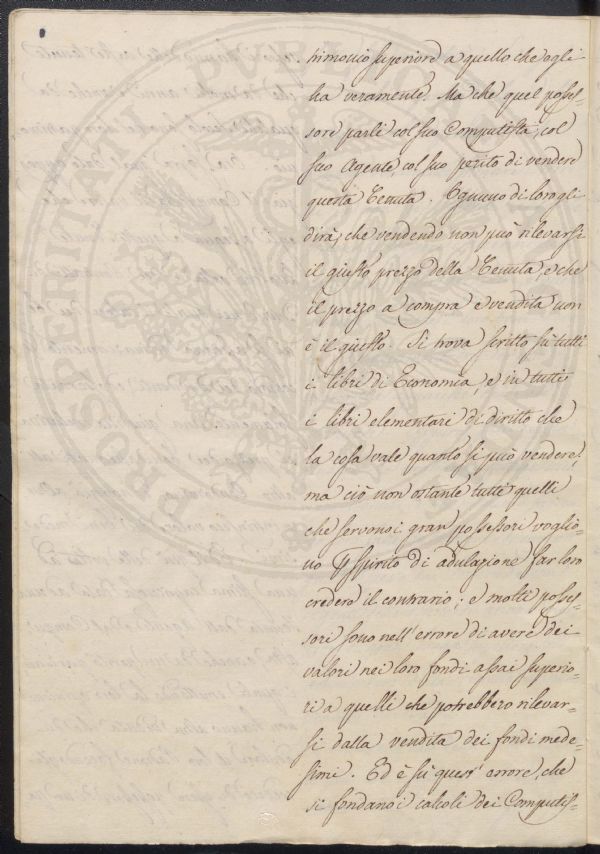 trimonio superiore a quello che egli
ha veramente. Ma che quel posses-
sore parli col suo Computista, col
suo Agente col suo perito di vendere
questa Tenuta. Ognuno di loro gli
dirà, che vendendo non può rilevarsi
il giusto prezzo della Tenuta, e che
il prezzo a compra e vendita non
è il giusto. Si trova scritto su tutti
i libri di Economia, e in tutti
i libri elementari di diritto che
la cosa vale quanto si può vendere,
ma ciò non ostante tutti quelli
che servono i gran possessori voglio-
no per spirito di adulazione far loro
credere il contrario; e molti posses-
sori sono nell'errore di avere dei
valori nei loro fondi assai superio-
ri a quelli che potrebbero rilevar-
si dalla vendita dei fondi mede-
simi. Ed è su quest'errore, che
si fondano i calcoli dei Computis-
PROSPERITATI PUBLICAE